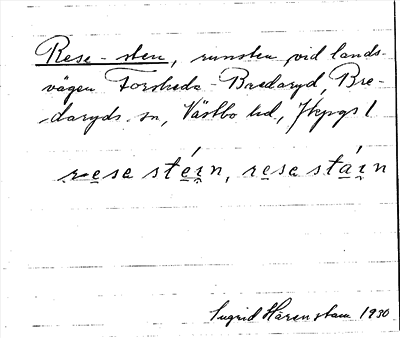 Rese-sten, runsten vid lands-
vägen Forsheda - Bredaryd, Bre-
daryds sn, Västbo hd, Jkpgs l
rese stéi̯n, resa stái̯n
Ingrid Härenstam 1930